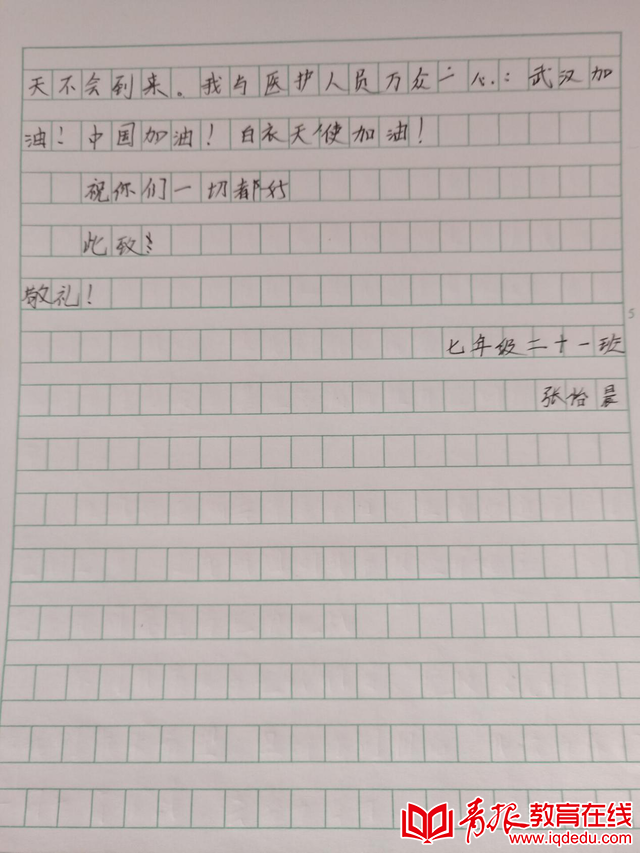 天不会到来。我与医护人员万众一心：武汉加
油！中国加油！白衣天使加油！
祝你们一切都好
此致
敬礼！
七年级二十一班
张怡晨
5
青报教育在线
www.iqdedu.com